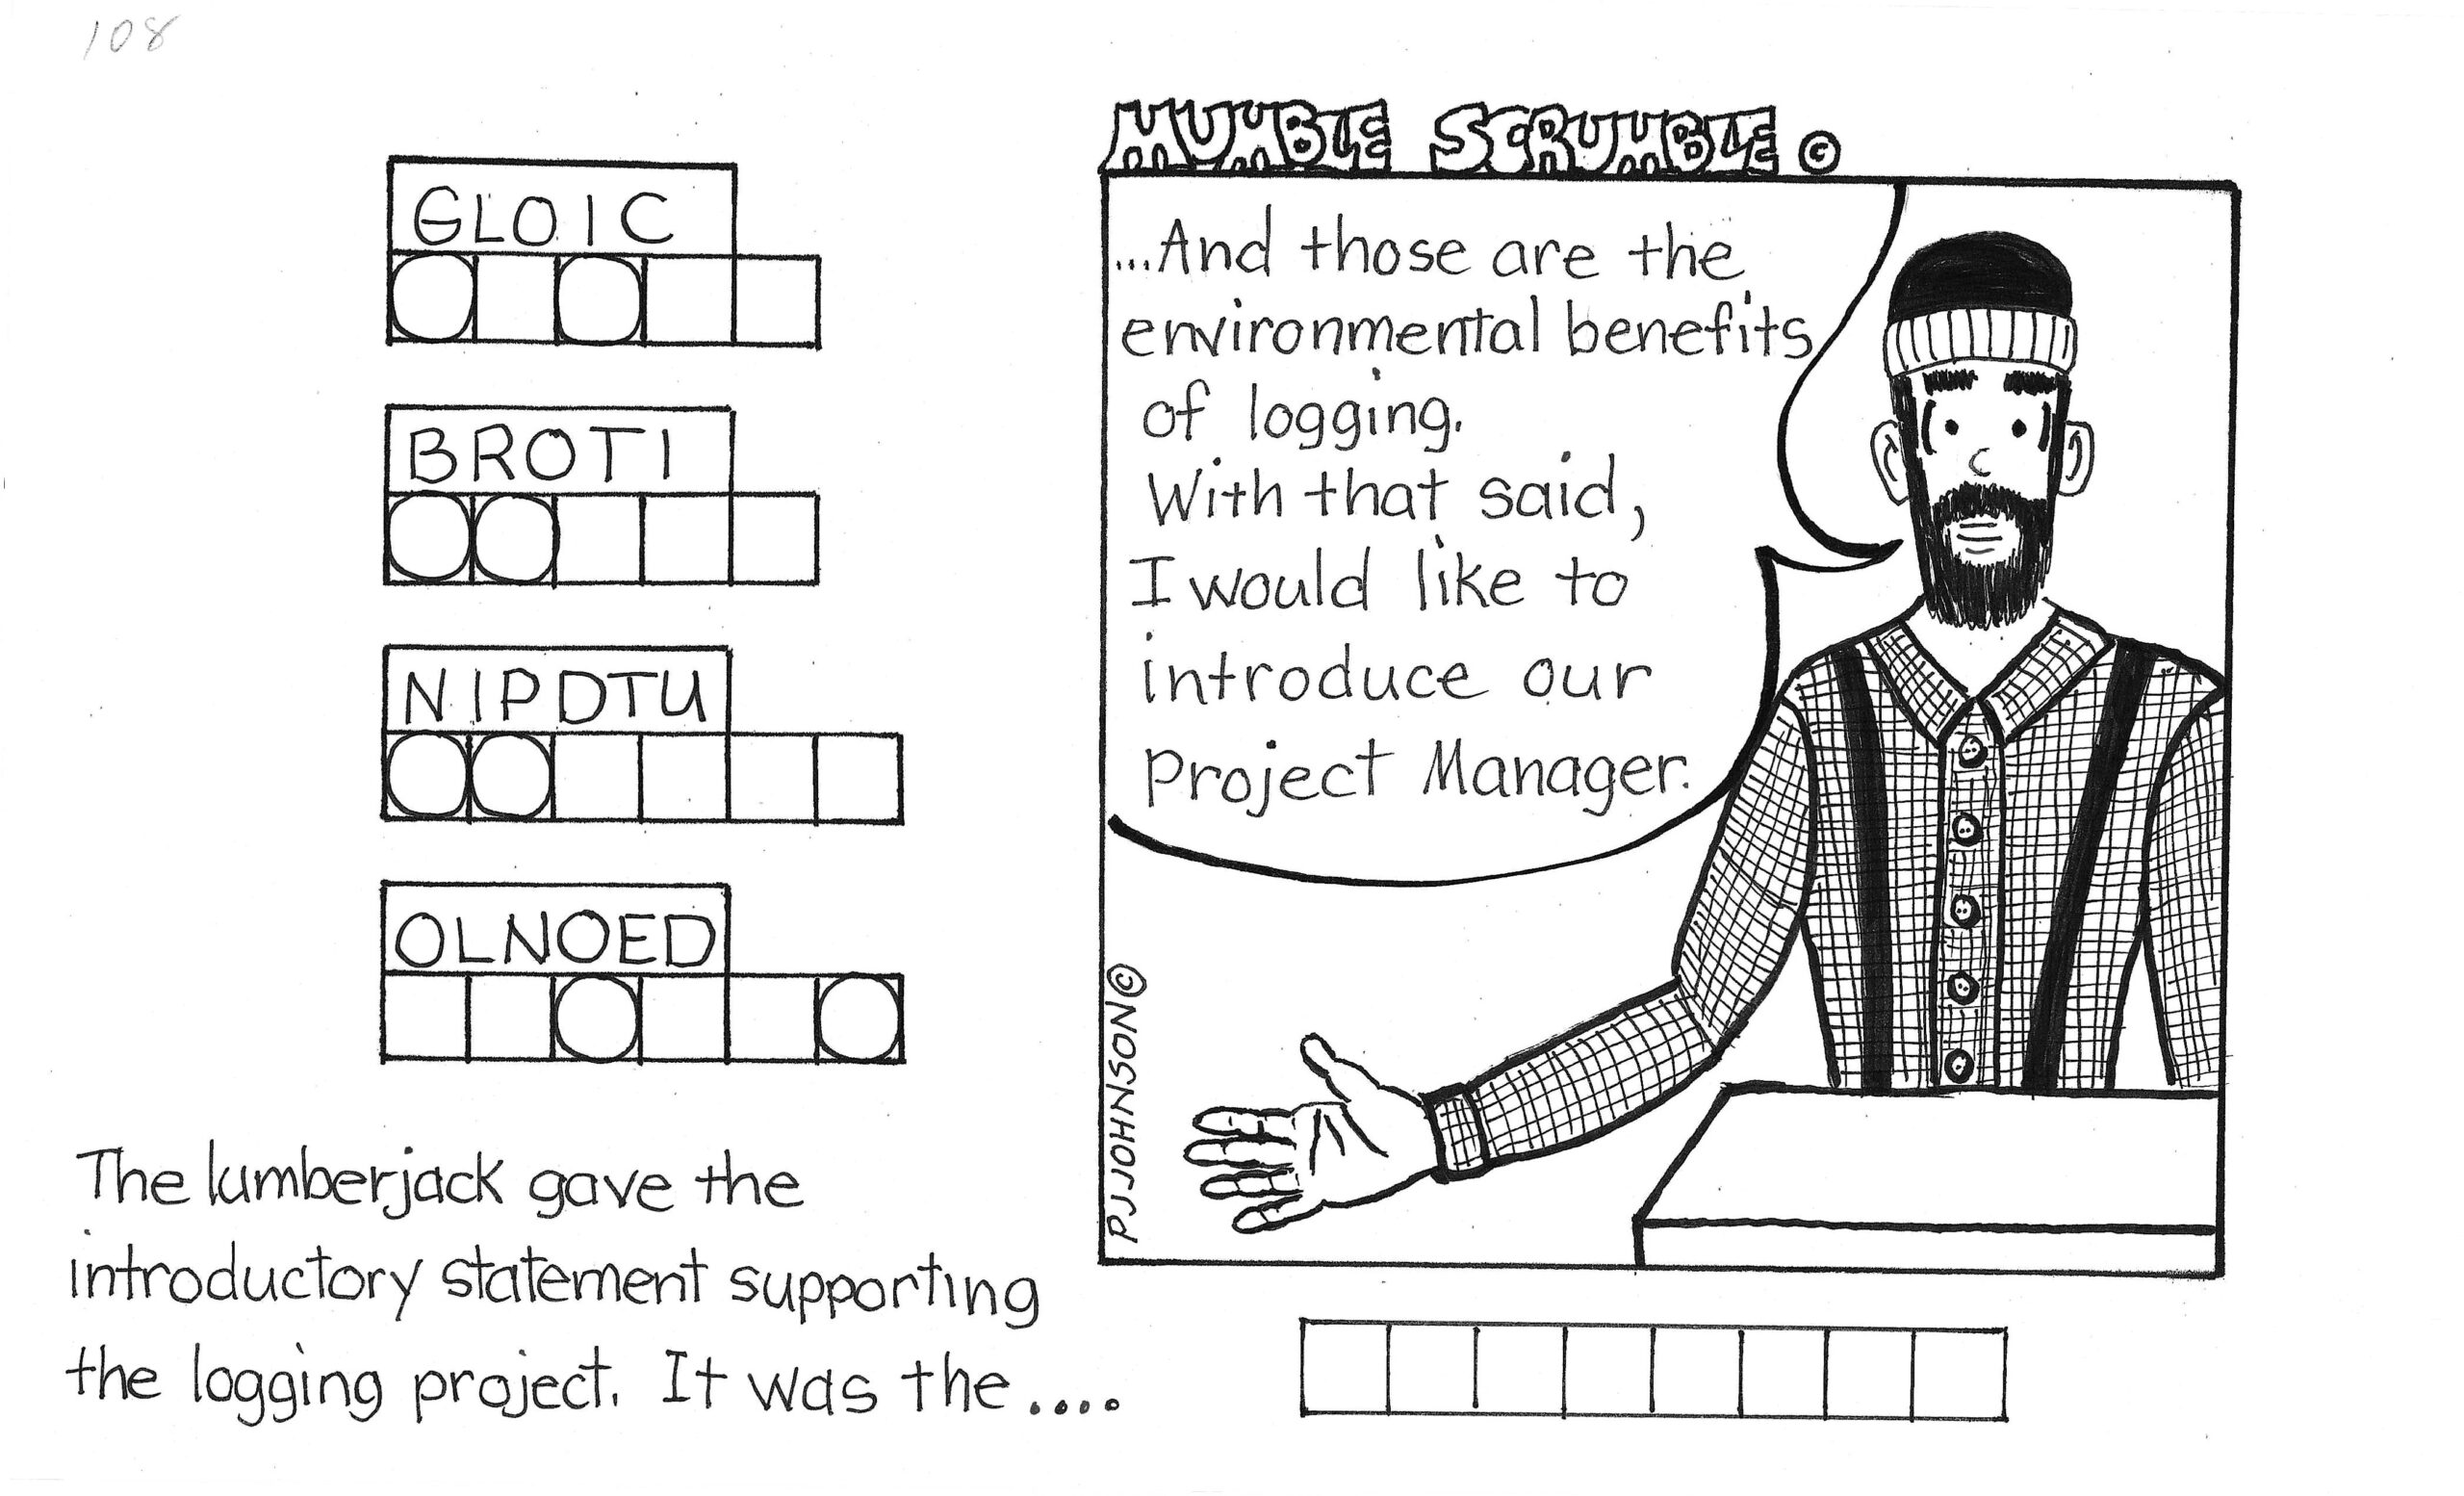 108
MUMBLE SCRUMBLE ©
GLOIC
BROTI
NIPDTU
OLNOED
...And those are the
environmental benefits
of logging.
With that said,
I would like to
introduce our
Project Manager.
PJJOHNSON©
The lumberjack gave the
introductory statement supporting
the logging project. It was the ....